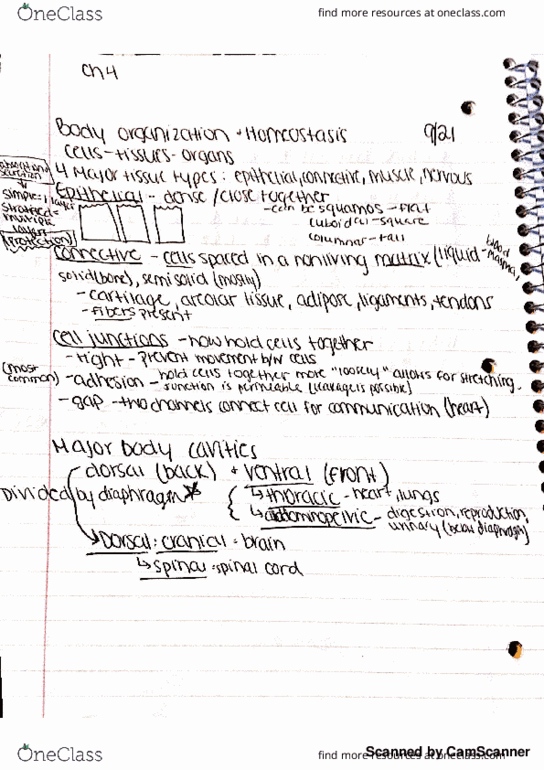 OneClass
find more resources at oneclass.com
Ch 4
Body organization + Homeostasis 9/21
cells-tissues-organs
4 Major tissue types: epithelial, connective, muscle, nervous
simple=1 layer
stratified=
multiple
layers
(protection)
Epithelial - dense/close together
-can be squamos -flat
cuboidal-square
columnar-tall
connective -cells spaced in a nonliving matrix (liquid -blood plasma,
solid(bone), semisolid (mostly)
-cartilage, areolar tissue, adipose, ligaments, tendons
-fibers present
cell junctions -how hold cells together
-tight - prevent movement b/w cells
(most common) -adhesion - hold cells together more "loosely" allows for stretching.
Junction is permeable (leakage is possible)
-gap -two channels connect cell for communication (heart)
Major body cavities
dorsal (back) + ventral (front)
Divided by diaphragm
↳thoracic - heart, lungs
↳abdominopelvic - digestion, reproduction,
urinary (below diaphragm)
↳Dorsal: cranial = brain
↳spinal =spinal cord
Scanned by CamScanner
OneClass
find more resources at oneclass.com